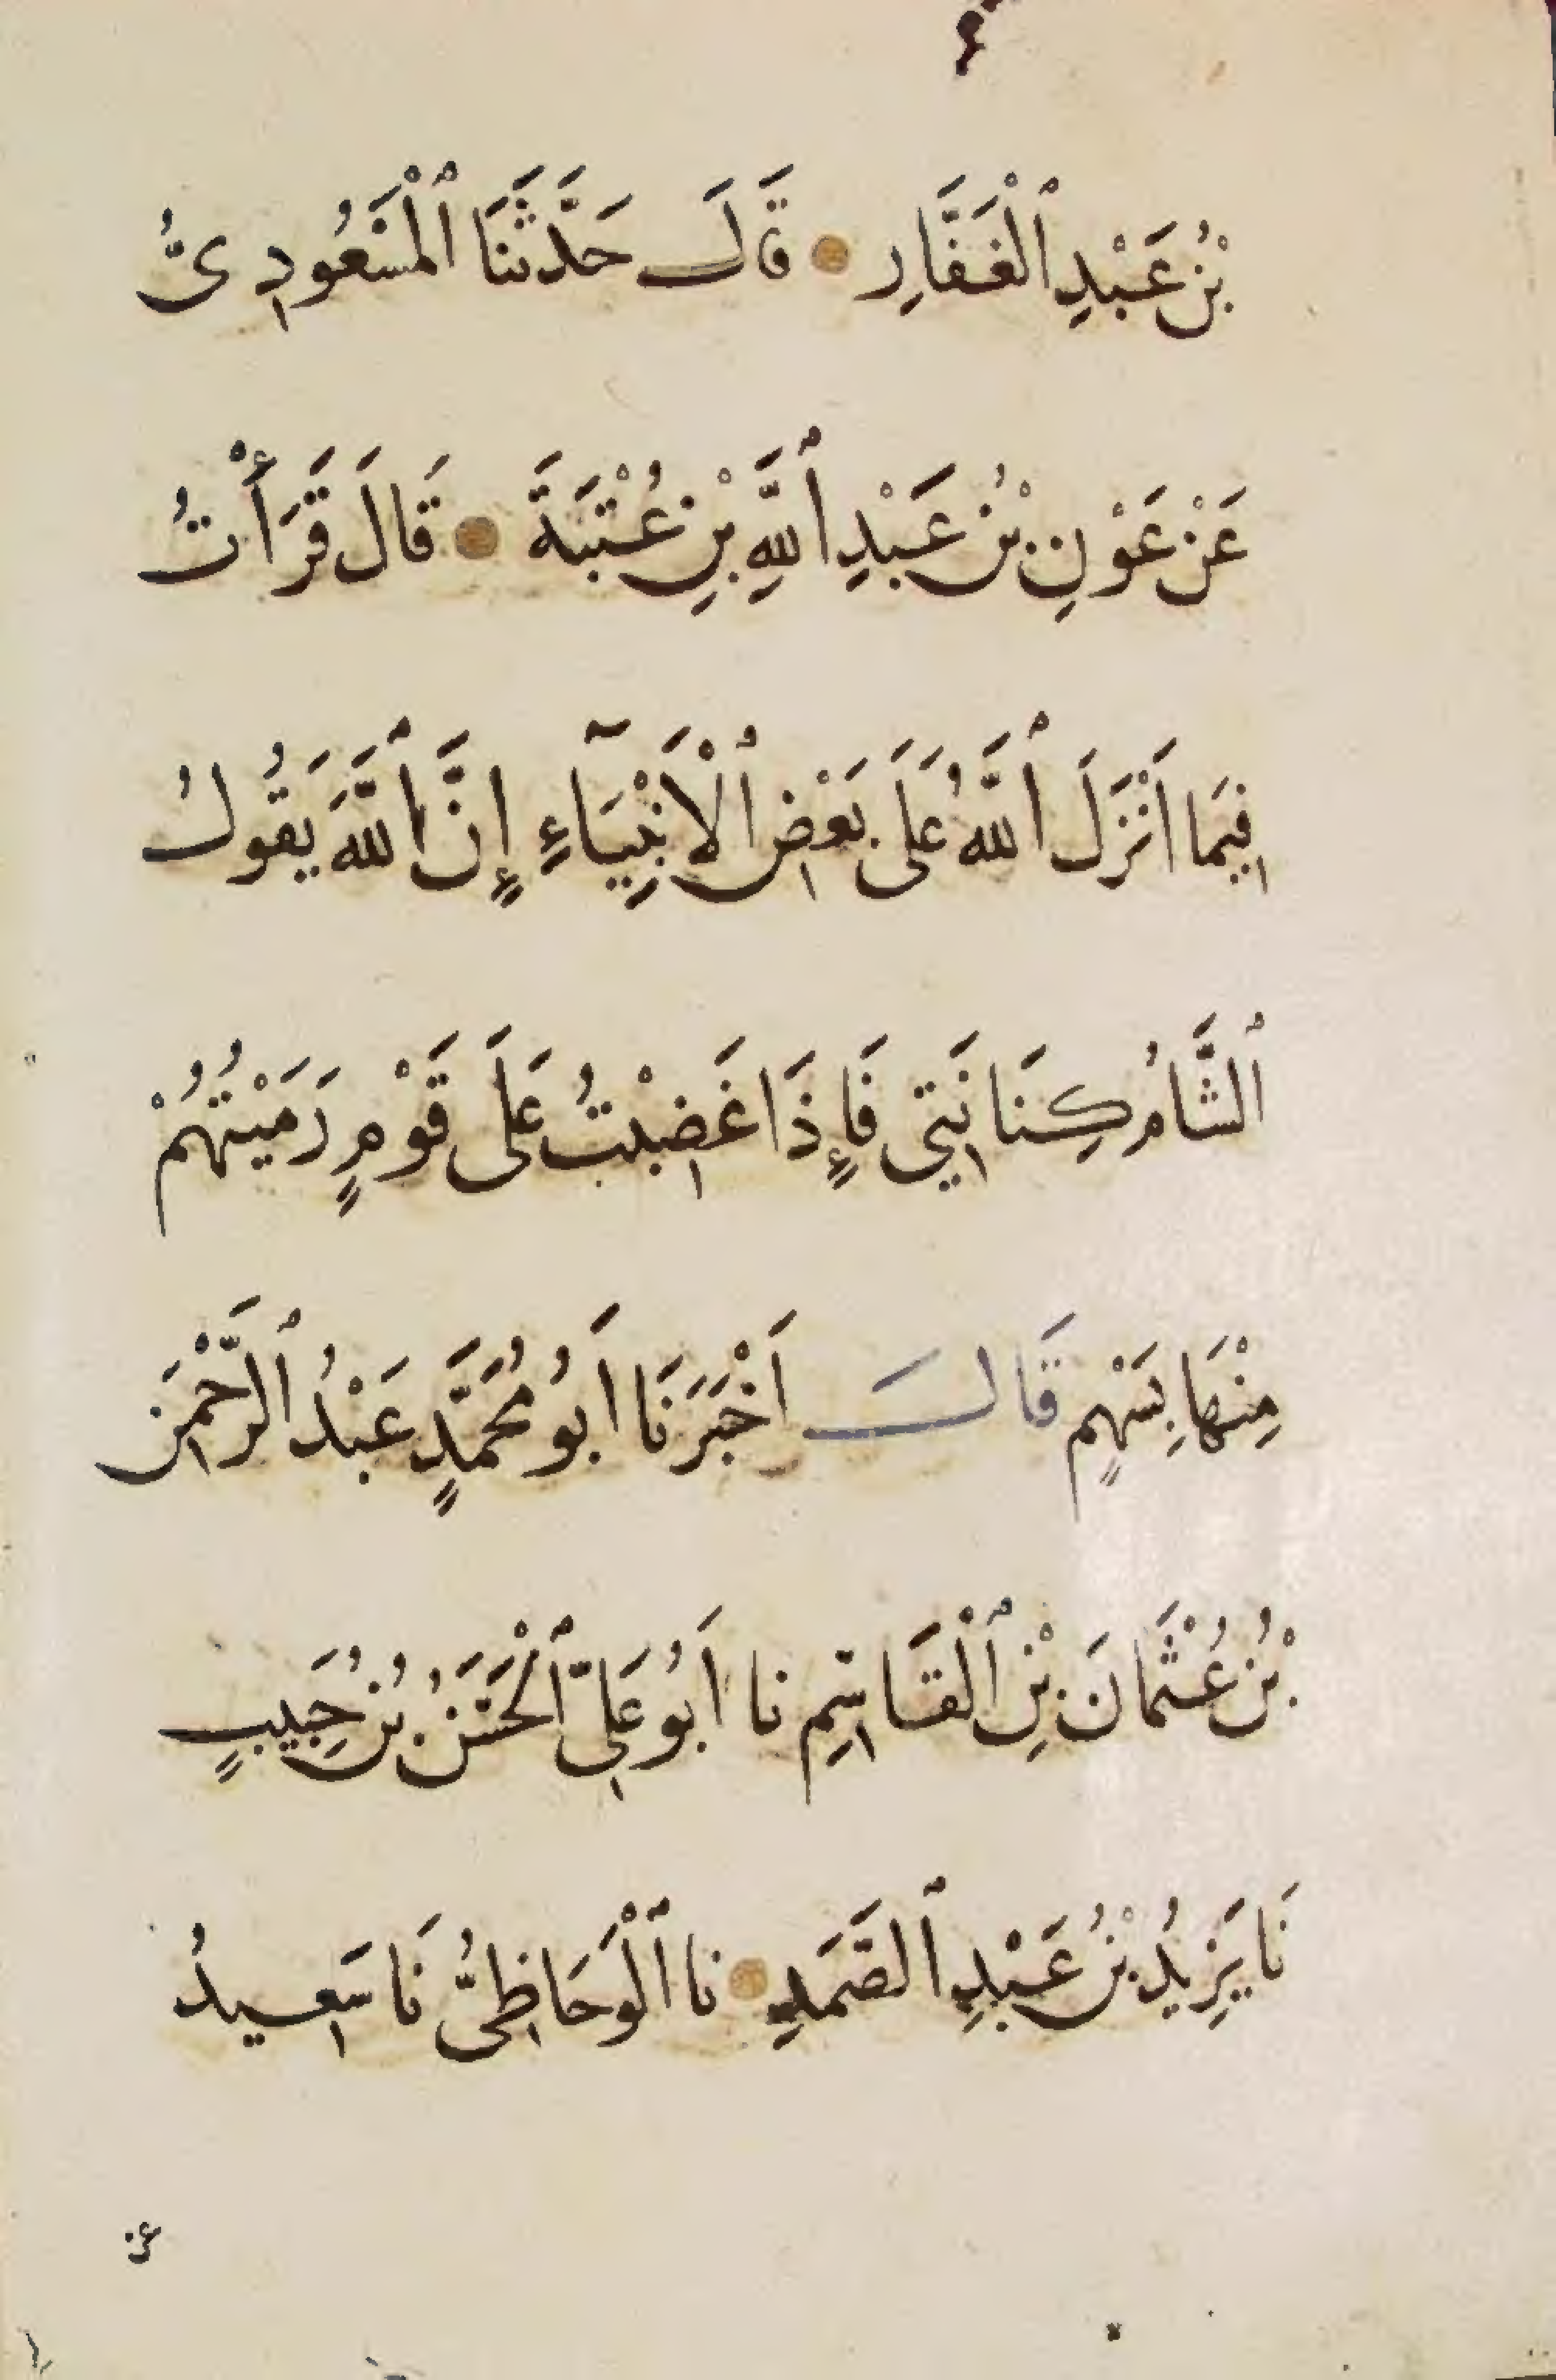 بْنُ عَبْدِ ٱلْغَفَّارِ ۰ قَالَ حَدَّثَنَا ٱلْمَسْعُودِىُّ
عَنْ عَوْنِ بْنُ عَبْدِ ٱللَّهِ بْنِ عُتْبَةَ ۰ قَالَ قَرَأْتُ
فِيمَا أَنْزَلَ ٱللَّهُ عَلَى بَعْضِ ٱلْأَنْبِيَآءِ إِنَّ ٱللَّهَ يَقُولُ
ٱلشَّامُ كِنَانَتِي فَإِذَا غَضِبْتُ عَلَى قَوْمٍ رَمَيْتُهُمْ
مِنْهَا بِسَهْمٍ قَالَ أَخْبَرَنَا أَبُو مُحَمَّدٍ عَبْدُ ٱلرَّحْمَنِ
بْنُ عُثْمَانَ بْنِ ٱلْقَاسِمِ نا أَبُو عَلِيّ ٱلْحَسَنُ بْنُ حَبِيبٍ
نَا يَزِيدُ بْنُ عَبْدِ ٱلصَّمَدِ ۰ نا ٱلْوَحَاظِىُّ نَا سَعِيدُ
عن